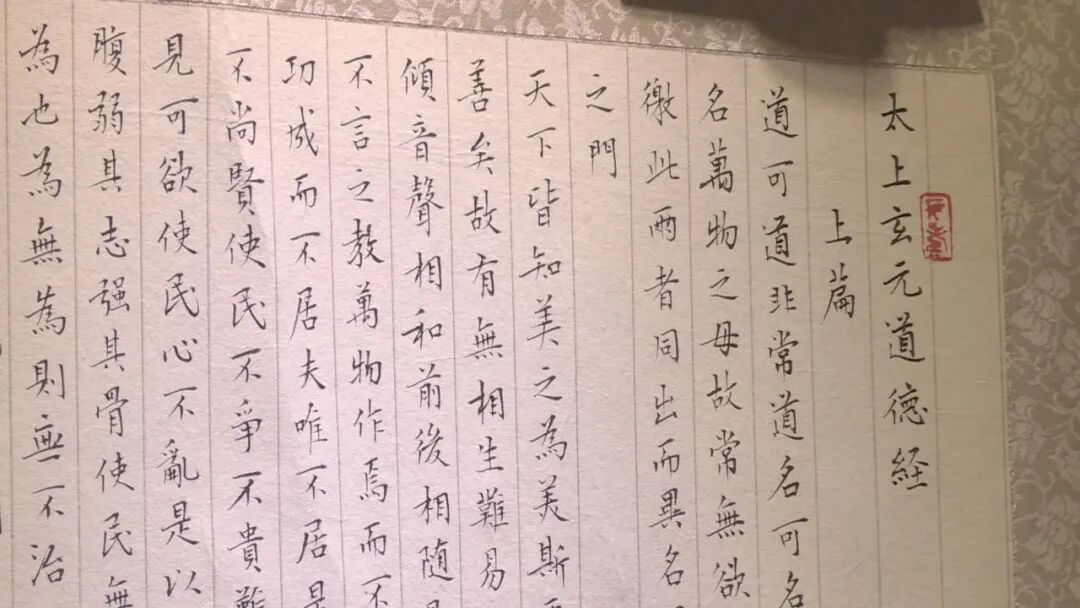 太上玄元道德経
上篇
道可道非常道名可名
名萬物之母故常無欲
徼此兩者同出而異名
之門
天下皆知美之為美斯
善矣故有無相生難易
傾音聲相和前後相隨
不言之教萬物作焉而不
功成而不居夫唯不居是
不尚賢使民不爭不貴難
見可欲使民心不亂是以
腹弱其志强其骨使民無
為也為無為則無不治